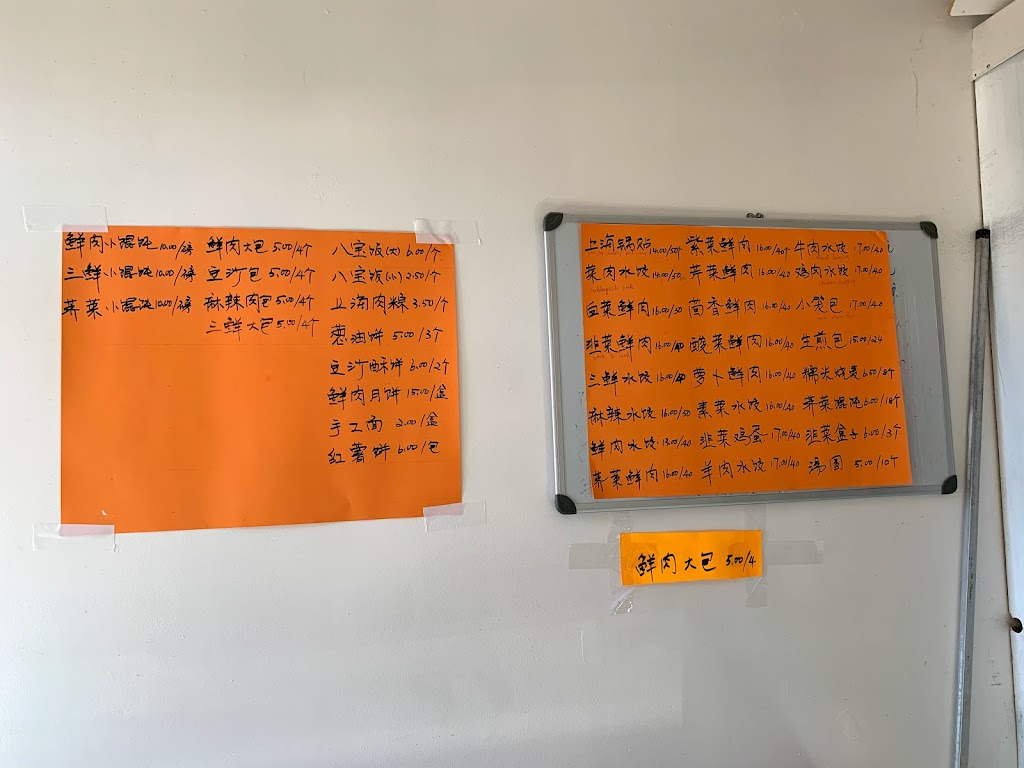 鲜肉小馄饨 10.00/磅 鲜肉大包 5.00/4个 八宝饭(大) 6.00/个
三鲜小馄饨 10.00/磅 豆沙包 5.00/4个 八宝饭(小) 2.50/个
荠菜小馄饨 10.00/磅 麻辣肉包 5.00/4个 上海肉粽 3.50/个
三鲜大包 5.00/4个 葱油饼 5.00/3个
豆沙酥饼 6.00/2个
鲜肉月饼 15.00/盒
手工面 2.00/盒
红薯饼 6.00/包
上海锅贴 14.00/50个 紫菜鲜肉 16.00/40个 牛肉水饺 17.00/40
菜肉水饺 14.00/50 荠菜鲜肉 16.00/40 鸡肉水饺 17.00/40
白菜鲜肉 16.00/50 茴香鲜肉 16.00/40 小笼包 17.00/40
韭菜鲜肉 16.00/40 酸菜鲜肉 16.00/40 生煎包 15.00/24
三鲜水饺 16.00/40 萝卜鲜肉 16.00/40 糯米烧卖 6.50/8个
麻辣水饺 16.00/50 素菜水饺 16.00/40 荠菜馄饨 6.00/18个
鲜肉水饺 13.00/40 韭菜鸡蛋 17.00/40 韭菜盒子 6.00/3个
荠菜鲜肉 16.00/40 羊肉水饺 17.00/40 汤圆 5.00/10个
鲜肉大包 5.00/4